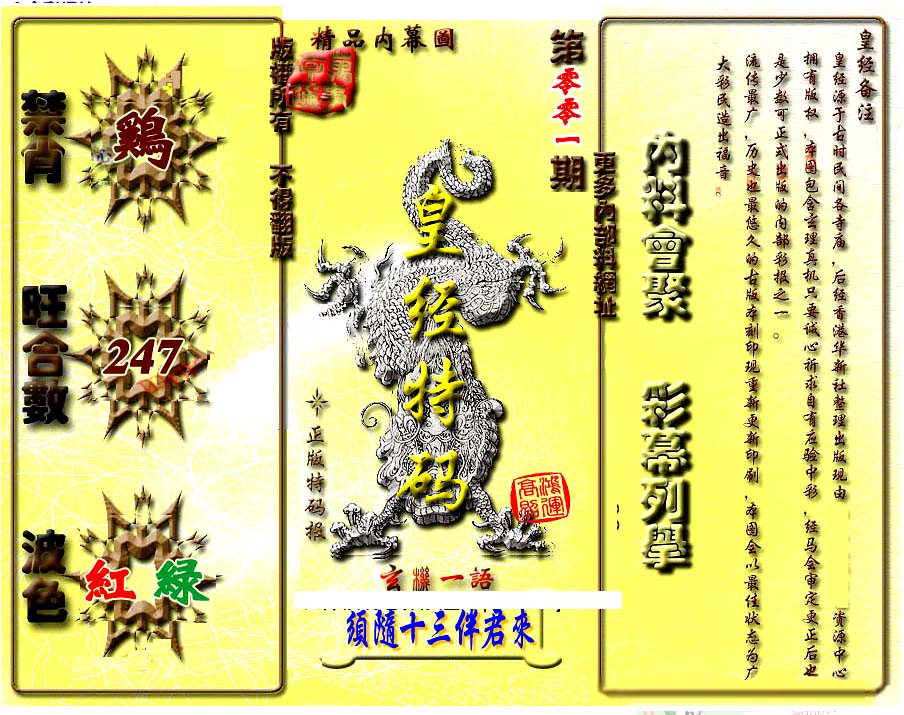 精品內幕圖
禁肖
鷄
旺合數
247
波色
紅 綠
版權所有 不得翻版
第零零一期
皇经特码
正版特码报
鴻運高照
玄機一語
須隨十三伴君來
更多內部料網址
內料會聚 彩幕列舉
皇经备注
皇经源于古时民间各寺庙，后经香港华新社整理出版现由 资源中心
拥有版权，本图包含玄理真机只要诚心祈求自有应验中彩，经马会审定更正后也
是少数可正式出版的内部彩报之一。
流传最广，历史也最悠久的古版本刻印现重新更新印刷，本图会以最佳状态为广
大彩民造出福音。